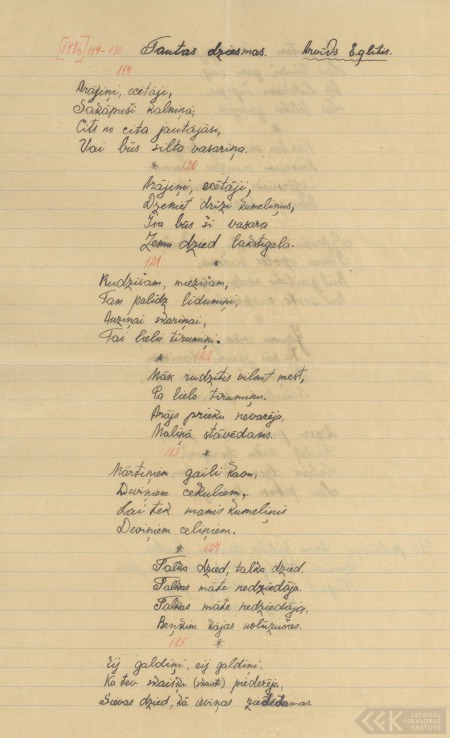 [1486] 119-130 Tautas dziesmas. Arvīds Eglītis.
119
Arājiņi, ecētāji,
Sākāpuši kalniņā;
Cits no cita jautājās,
Vai būs silta vasariņa.
* 120
Arājiņi, ecētāji,
Dzeniet drīzi kumeliņus,
Šva būs šī vasara
Zemu dzied lakstīgala.
121 *
Rudzīšam, miezīšam,
Tam palīdz līdumiņi;
Auziņai skariņai,
Tai lieli tīrumiņi.
* 122
Nāk rudzītis vilnīt mest,
Pa lielo tīrumiņu.
Arājs prieku nevarēja,
Maliņā stāvēdams.
123 *
Mārtiņiem gaili kavu,
Deviņiem cekuliem,
Lai tek manis kumeliņis
Deviņiem celiņiem.
* 124
Talka dzied, talka dzied
Talkas māte nedziedāja.
Talkas māte nedziedāja,
Benķim kājas nolūzušas.
125 *
Eij galdiņi, eij galdiņi.
Ko tev skaišķi (skaisti) piederēja,
Sievas dzied, kā ieviņas ziedēdamas.
LATVIEŠU
FOLKLORAS
KRĀTUVE